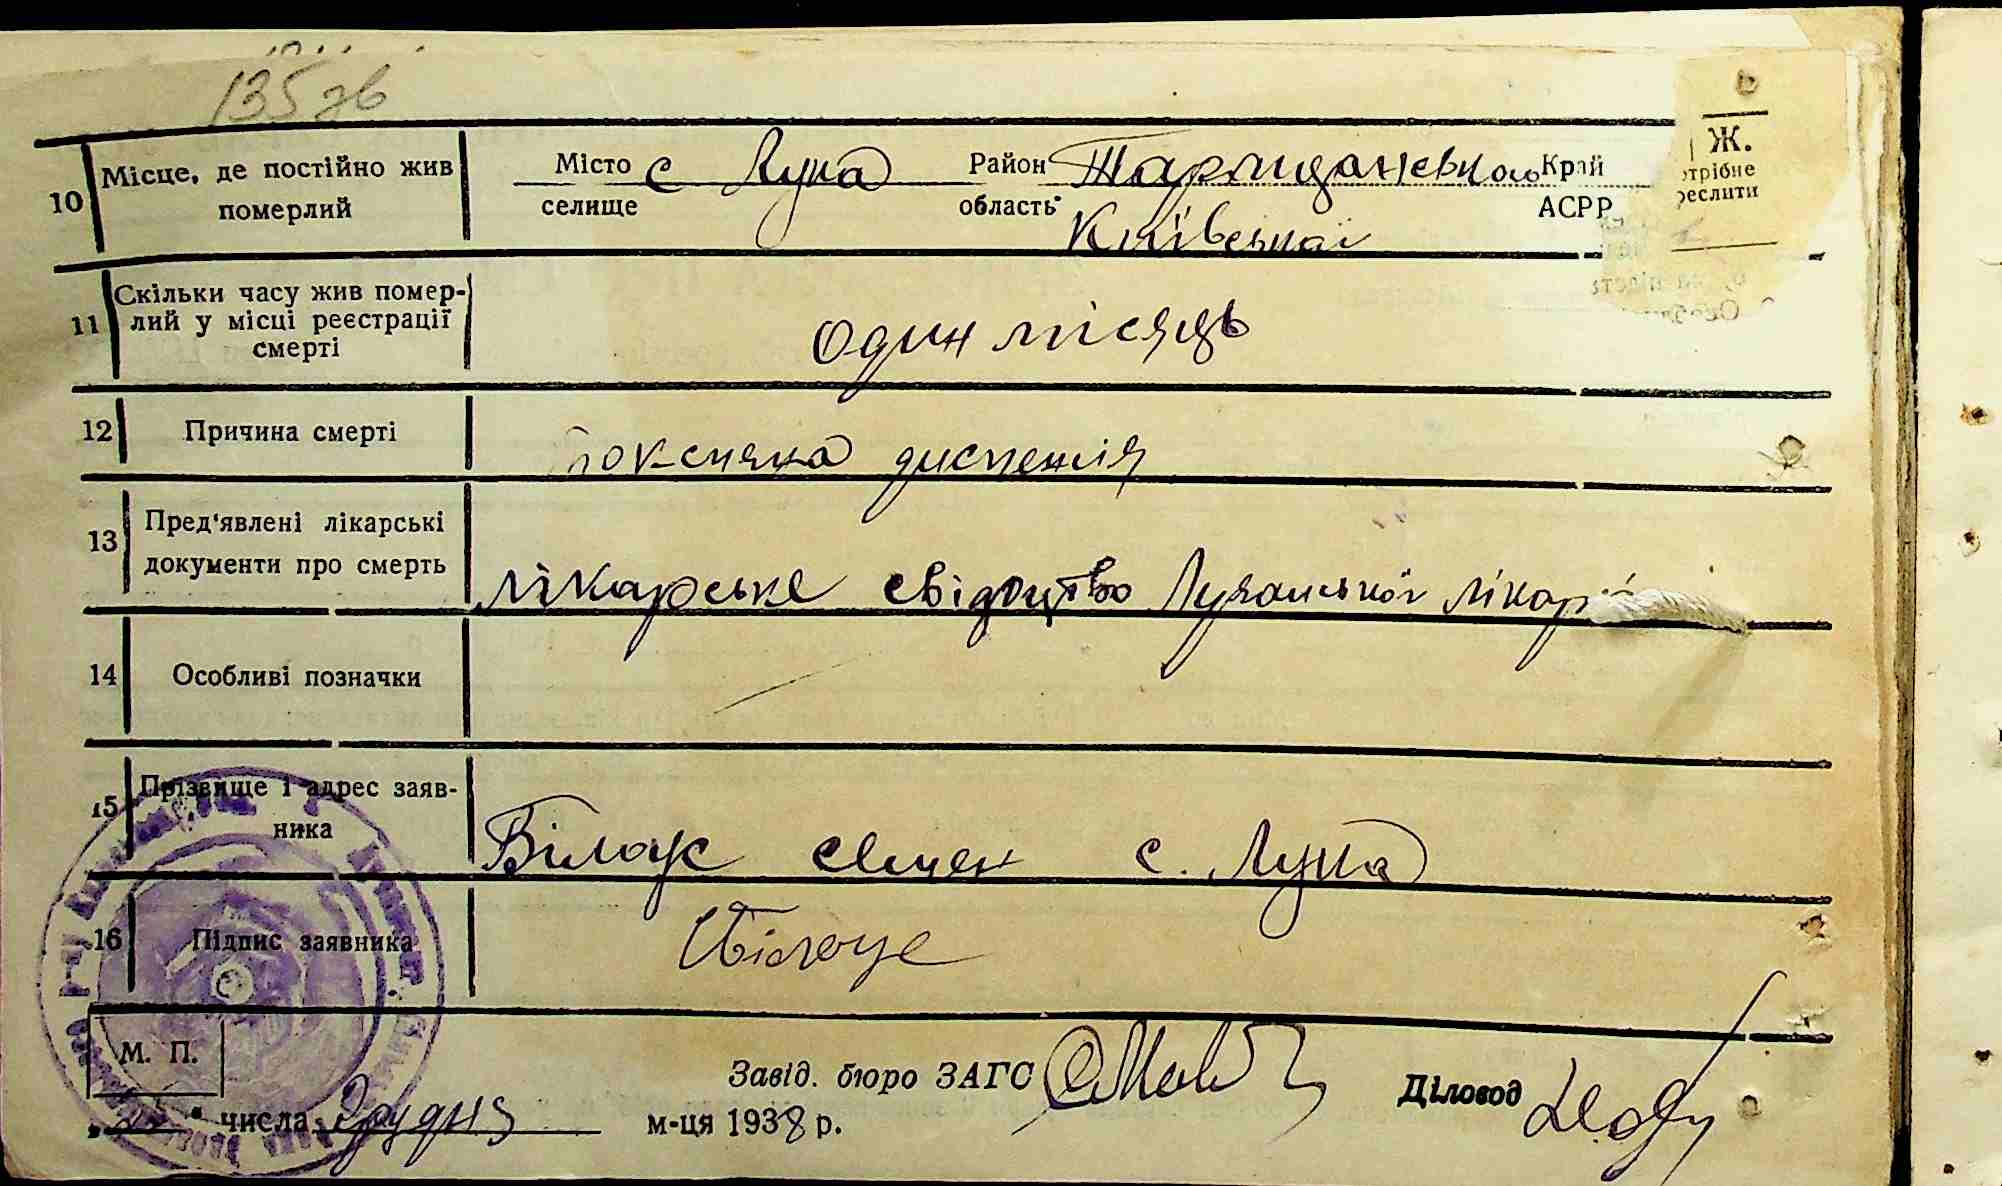 135 зв
10 Місце, де постійно жив померлий
Місто селище с Лука Район область Таращанського Край АСРР
Київської
Ж.
отрібне
реслити
11 Скільки часу жив помер-
лий у місці реєстрації
смерті
один місяць
12 Причина смерті
токсична диспепсія
13 Пред'явлені лікарські
документи про смерть
лікарське свідоцтво Лучанської лікар
14 Особливі позначки
15 Прізвище і адрес заяв-
ника
Білоус Семен с. Лука
16 Підпис заявника
Білоус
М. П.
Завід. бюро ЗАГС
Діловод
" числа грудня м-ця 1938 р.